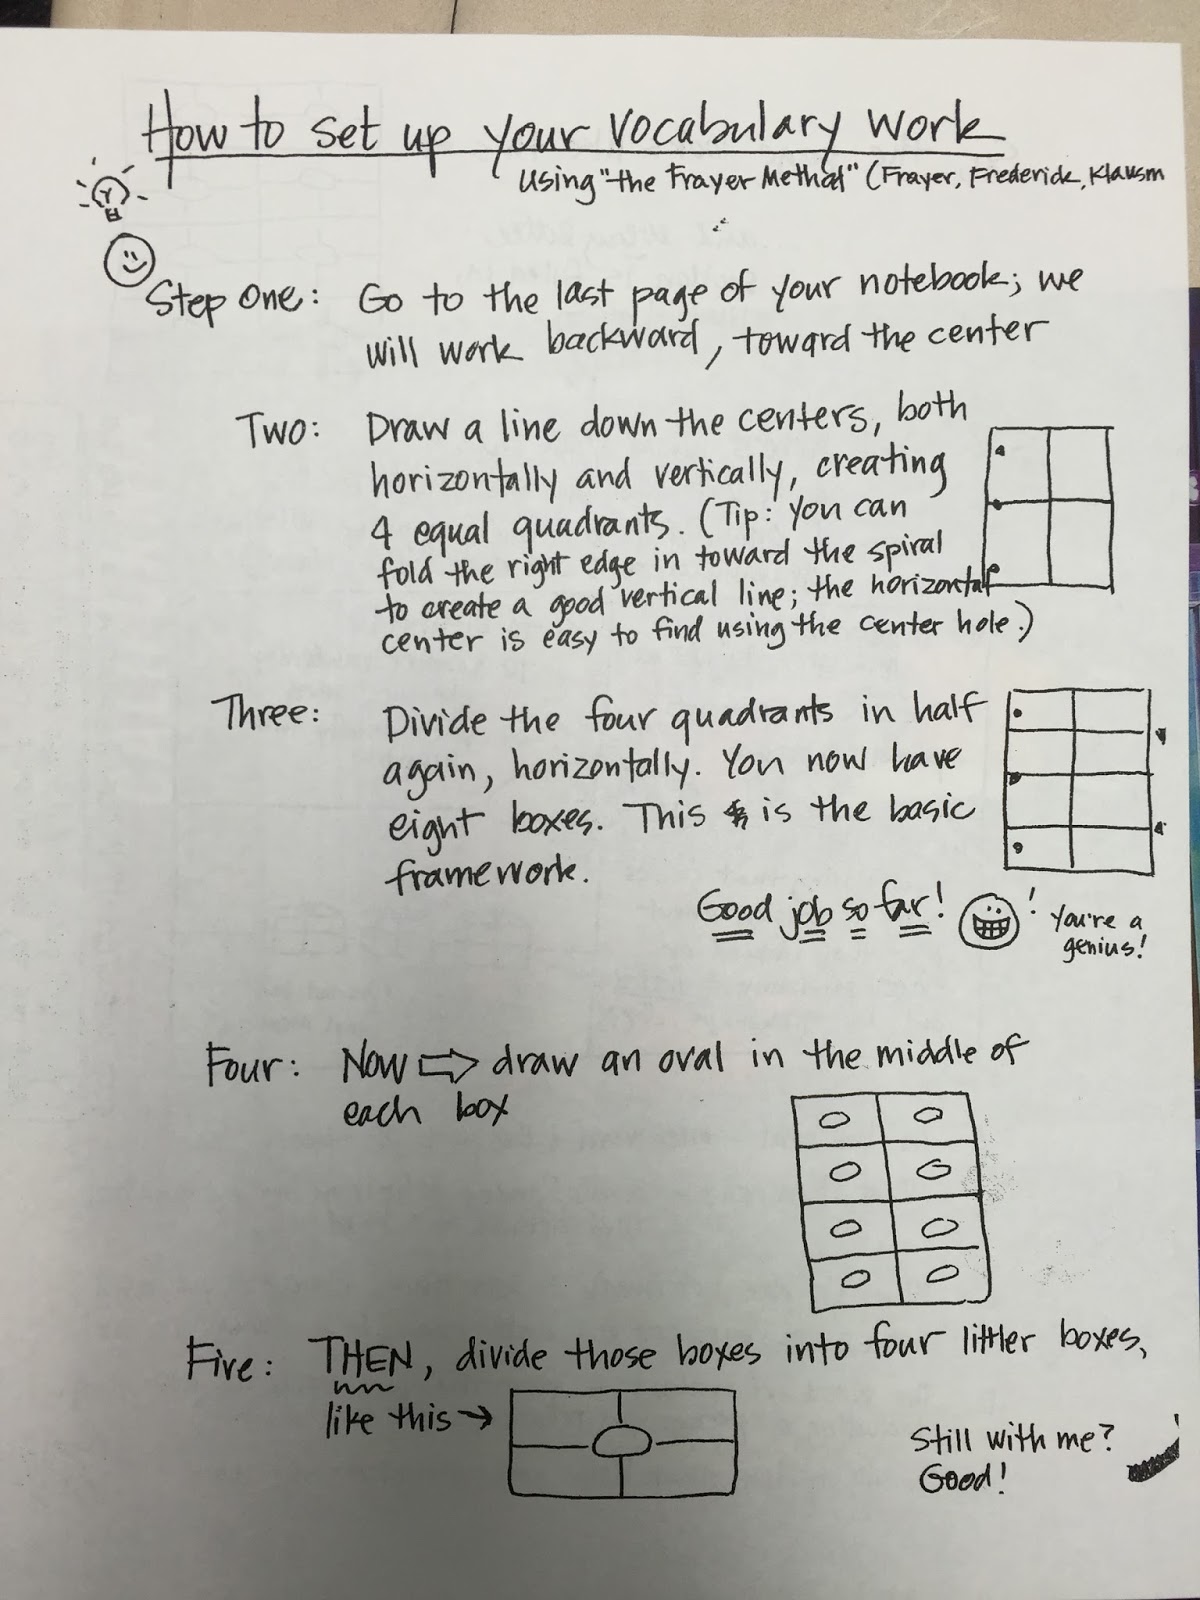 How to set up your vocabulary work
Using "the Frayer Method" (Frayer, Frederick, Klausm
Step One: Go to the last page of your notebook; we
will work backward, toward the center
Two: Draw a line down the centers, both
horizontally and vertically, creating
4 equal quadrants. (Tip: you can
fold the right edge in toward the spiral
to create a good vertical line; the horizontal
center is easy to find using the center hole.)
Three: Divide the four quadrants in half
again, horizontally. You now have
eight boxes. This is the basic
framework.
Good job so far! ! You're a
genius!
Four: Now ⇨ draw an oval in the middle of
each box
Five: THEN, divide those boxes into four littler boxes,
like this →
Still with me?
Good!